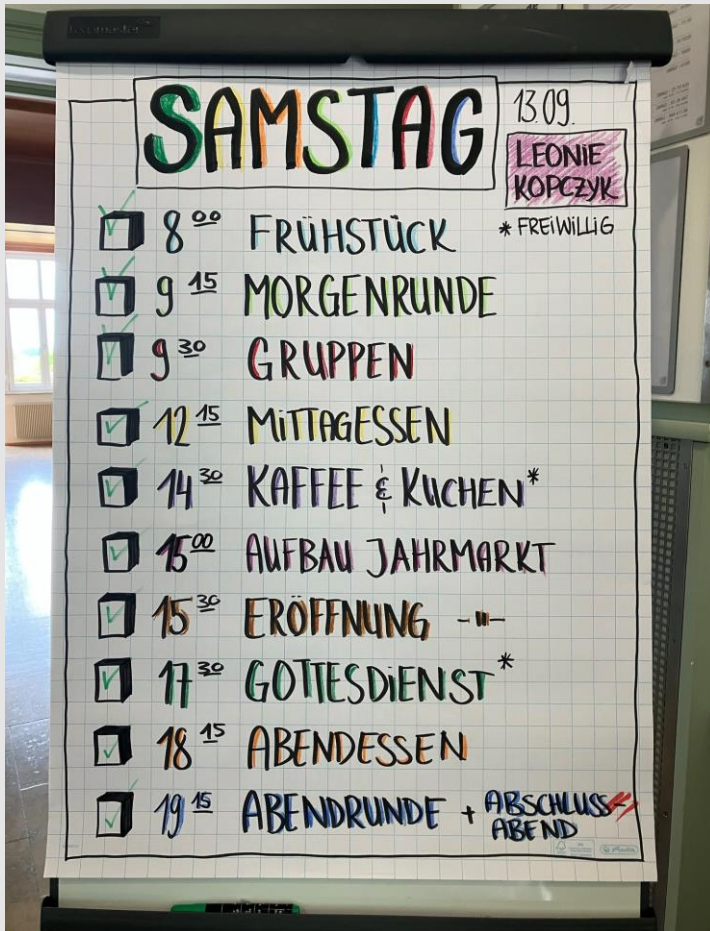 SAMSTAG
13.09.
LEONIE
KOPCZYK
* FREIWILLIG
8 00 FRÜHSTÜCK
9 15 MORGENRUNDE
9 30 GRUPPEN
12 15 MITTAGESSEN
14 30 KAFFEE & KUCHEN*
15 00 AUFBAU JAHRMARKT
15 30 ERÖFFNUNG -"-
17 30 GOTTESDIENST*
18 15 ABENDESSEN
19 15 ABENDRUNDE + ABSCHLUSS-
ABEND